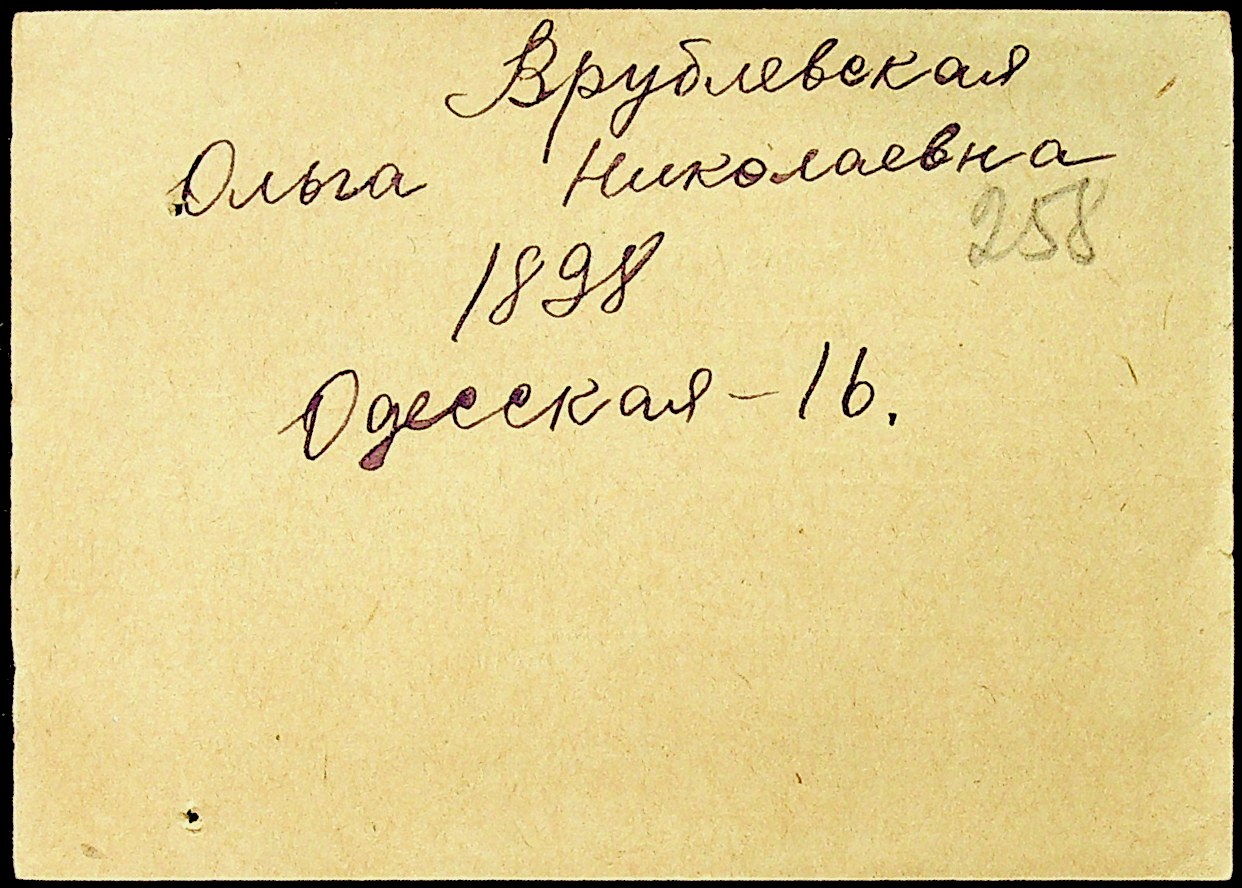 Врублевская
Ольга Николаевна
258
1898
Одесская - 16.